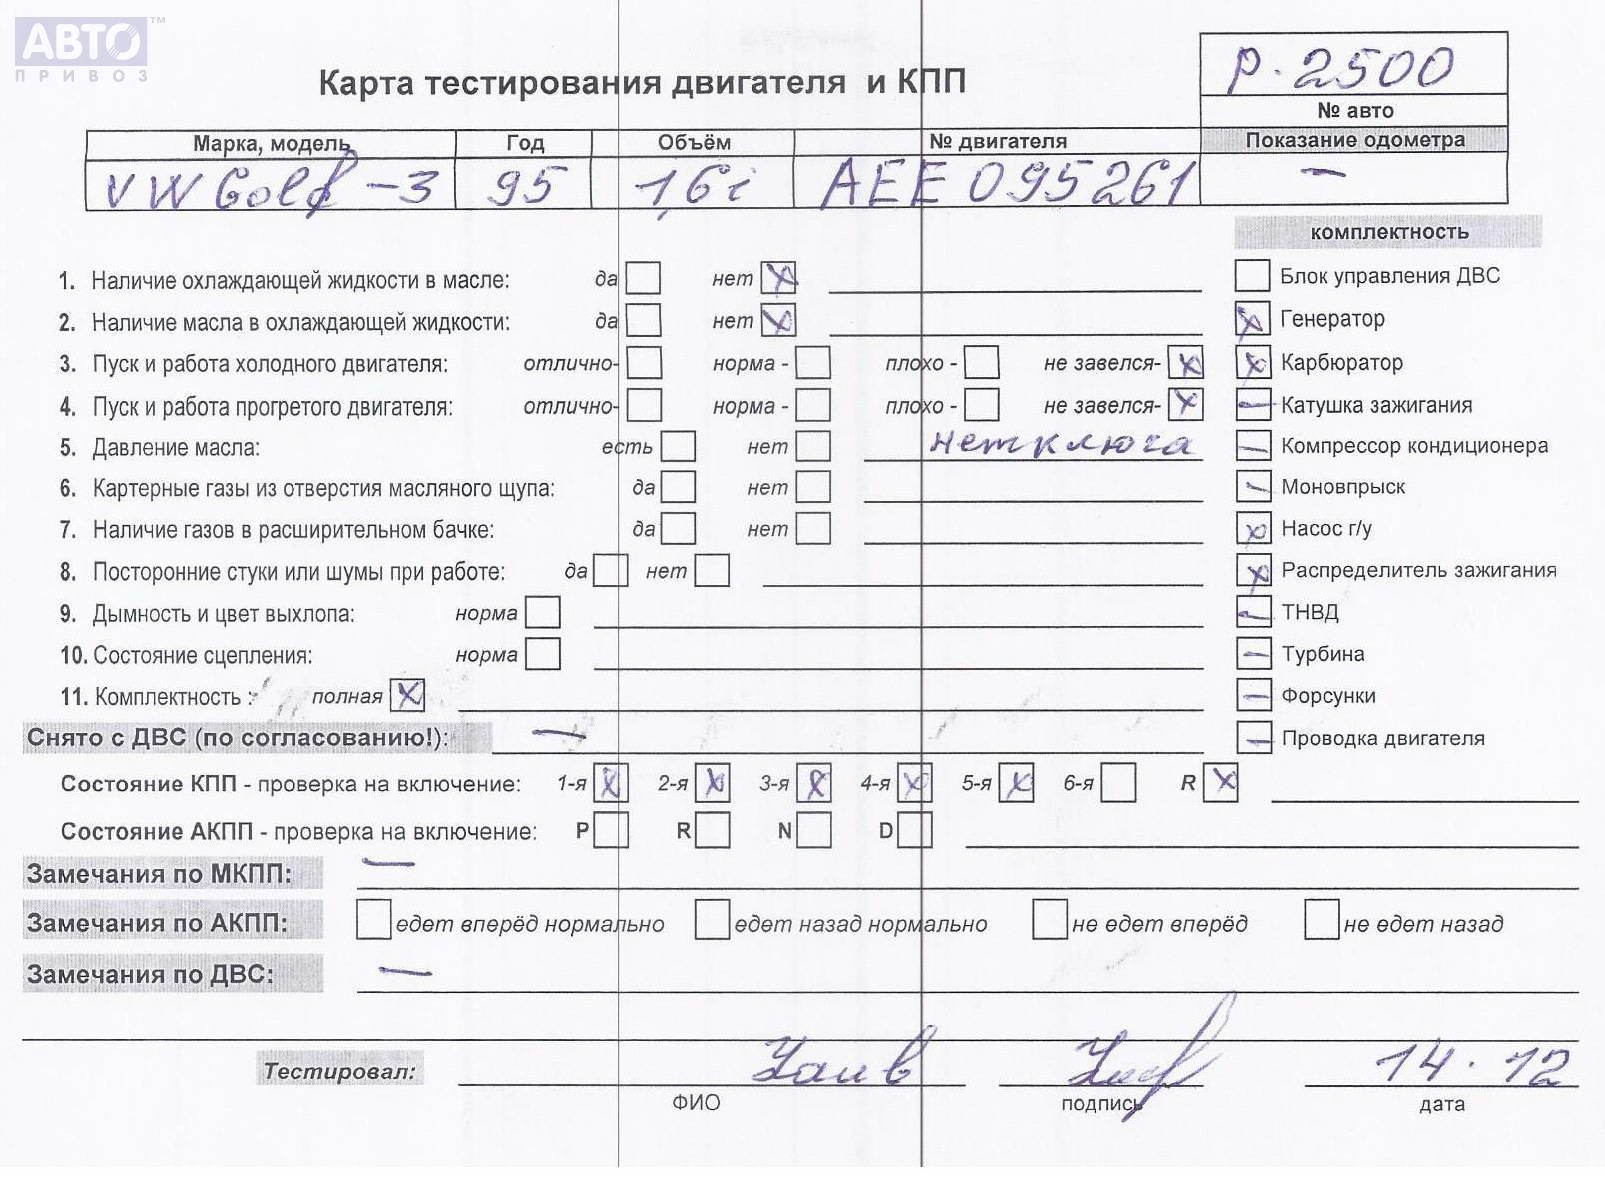 АВТО™
ПРИВОЗ
Р. 2500
Карта тестирования двигателя и КПП
№ авто
Марка, модель Год Объём № двигателя Показание одометра
VW Golf-3 95 1,6i AEE 095261 —
комплектность
1. Наличие охлаждающей жидкости в масле: да нет X
Блок управления ДВС
2. Наличие масла в охлаждающей жидкости: да нет X
X Генератор
3. Пуск и работа холодного двигателя: отлично- норма - плохо - не завелся- X
X Карбюратор
4. Пуск и работа прогретого двигателя: отлично- норма - плохо - не завелся- X
— Катушка зажигания
5. Давление масла: есть нет нет ключа
— Компрессор кондиционера
6. Картерные газы из отверстия масляного щупа: да нет
— Моновпрыск
7. Наличие газов в расширительном бачке: да нет
X Насос г/у
8. Посторонние стуки или шумы при работе: да нет
X Распределитель зажигания
9. Дымность и цвет выхлопа: норма
— ТНВД
10. Состояние сцепления: норма
— Турбина
11. Комплектность : полная X
— Форсунки
Снято с ДВС (по согласованию!): —
— Проводка двигателя
Состояние КПП - проверка на включение: 1-я X 2-я X 3-я X 4-я X 5-я X 6-я R X
Состояние АКПП - проверка на включение: P R N D
Замечания по МКПП: —
Замечания по АКПП: едет вперёд нормально едет назад нормально не едет вперёд не едет назад
Замечания по ДВС: —
Тестировал: 14.12
ФИО подпись дата